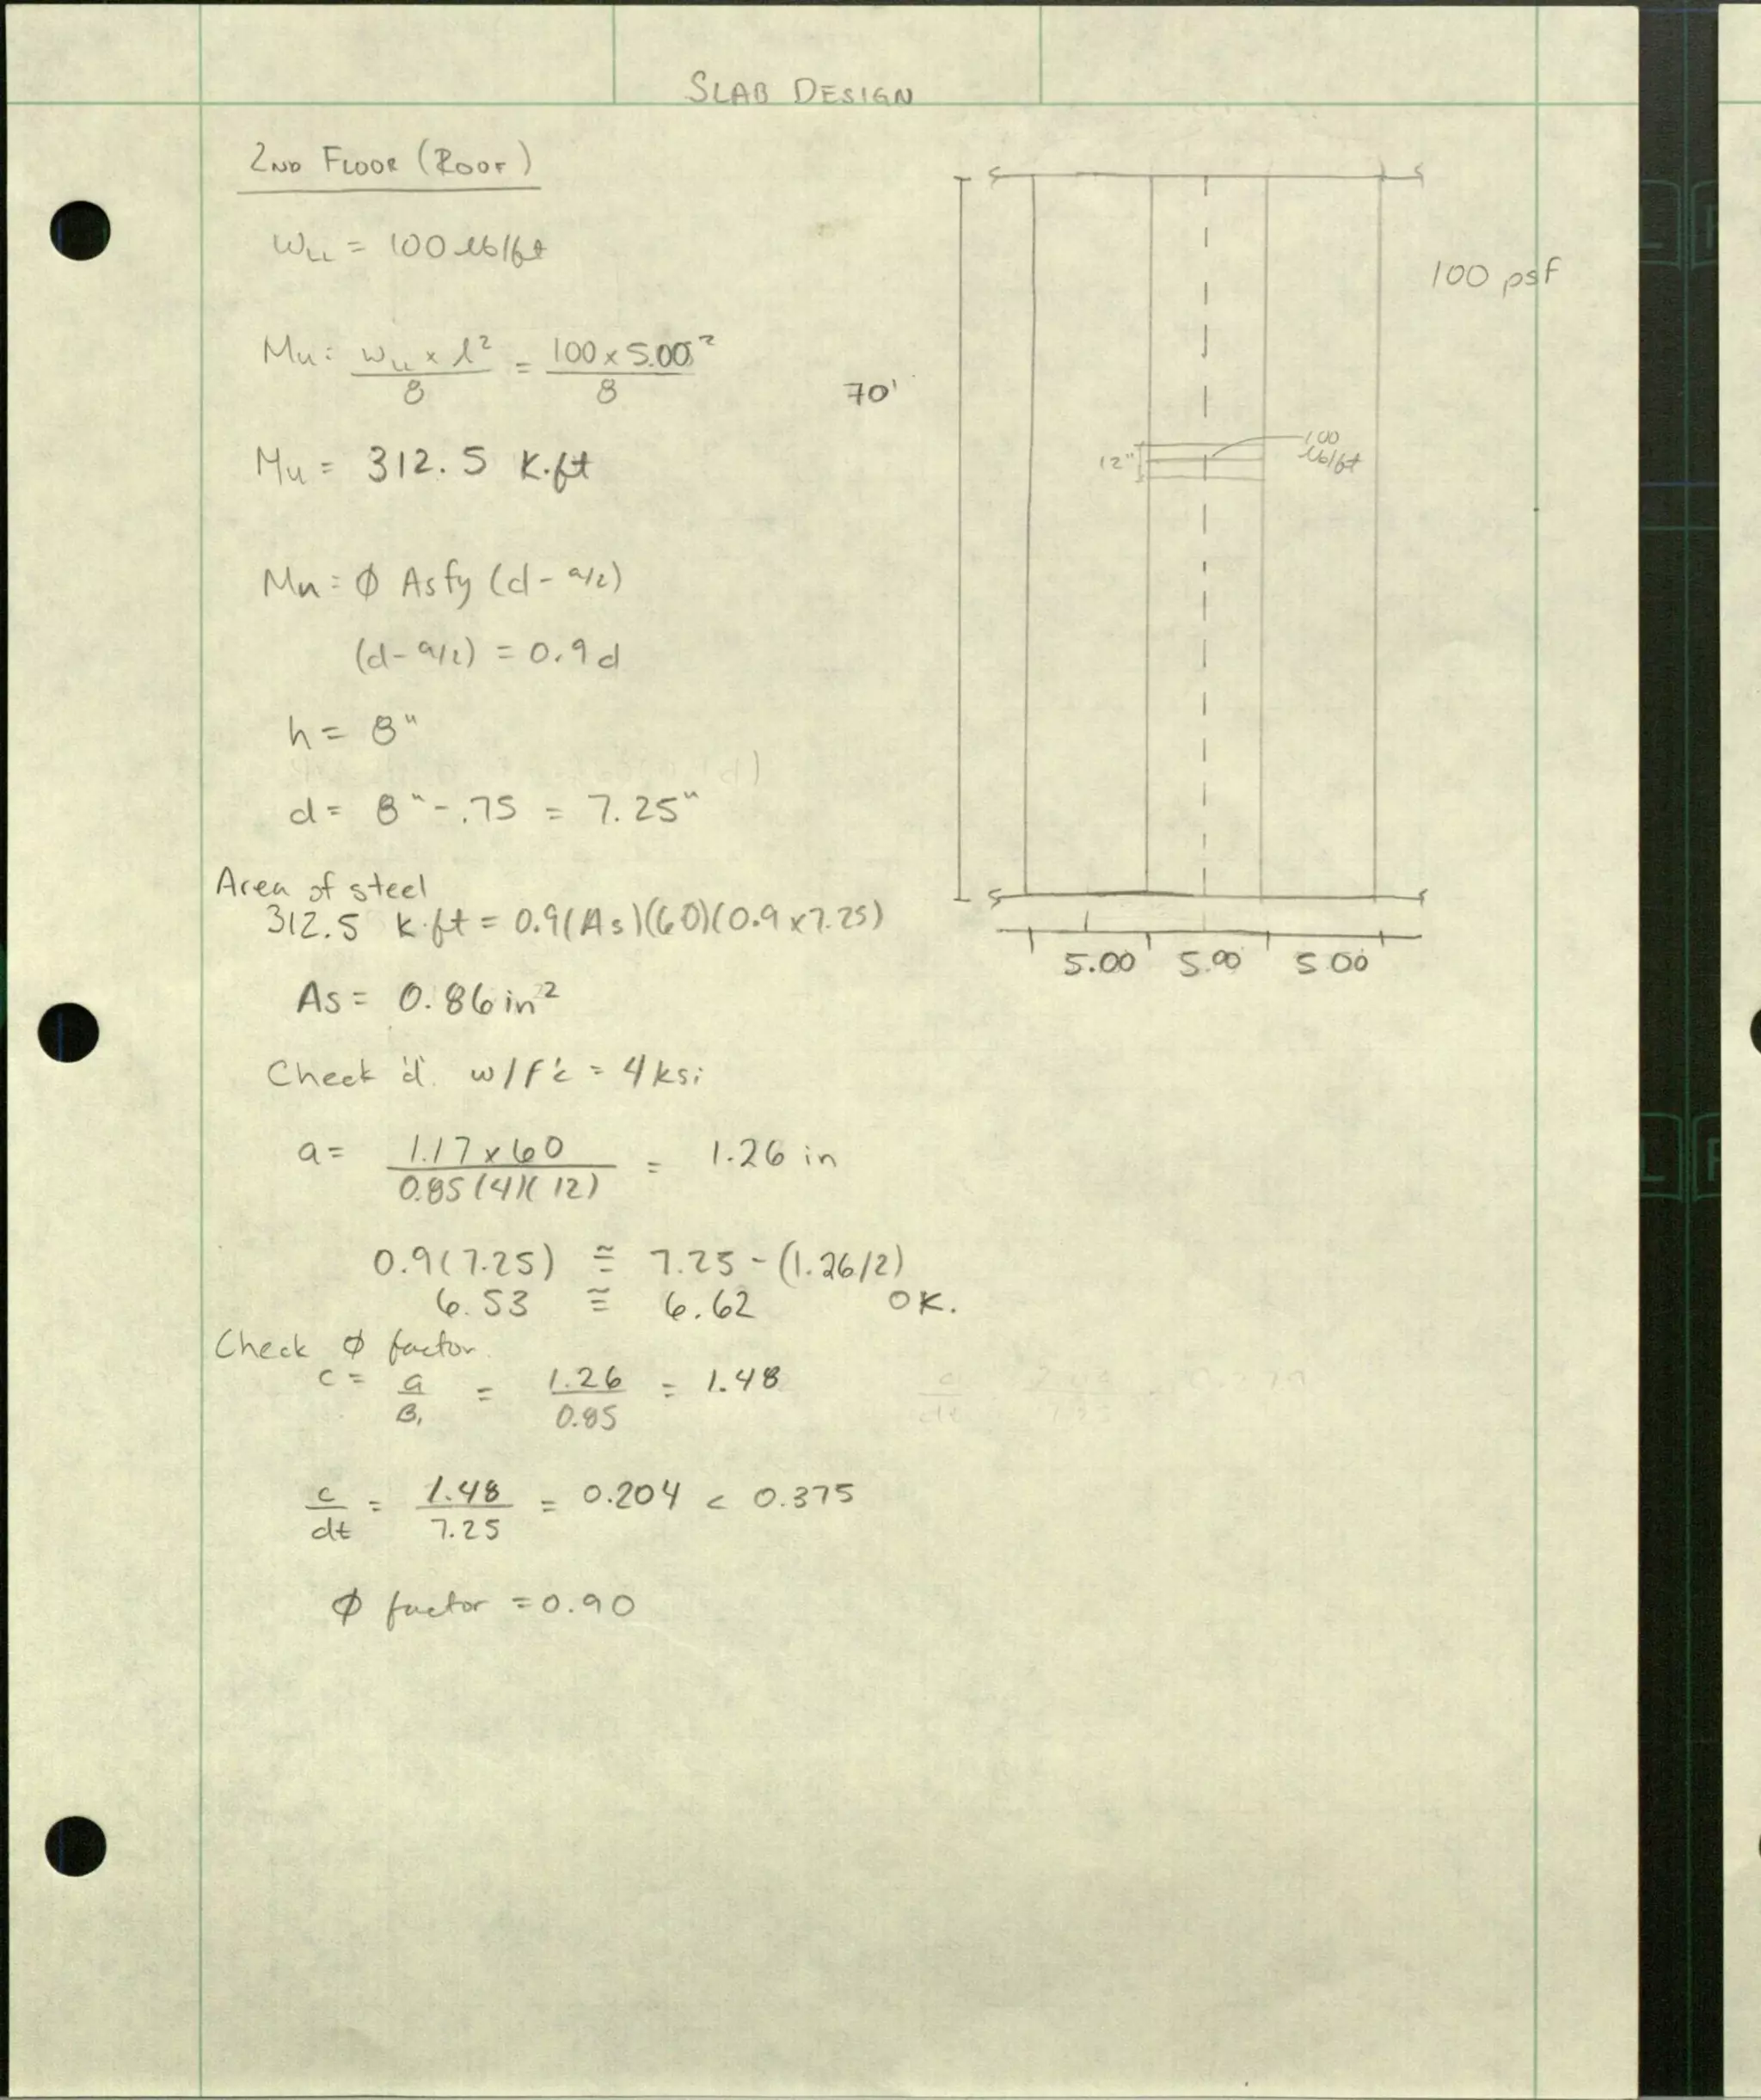 SLAB DESIGN
2ND FLOOR (ROOF)
W_LL = 100 lb/ft
Mu = w_u x l² / 8 = 100 x 5.00² / 8
Mu = 312.5 K.ft
Mn = φ As fy (d - a/2)
(d - a/2) = 0.9 d
h = 8"
d = 8" - .75 = 7.25"
Area of steel
312.5 k.ft = 0.9(As)(60)(0.9 x 7.25)
As = 0.86 in²
Check 'd'. w/ f'c = 4 ksi
a = 1.17 x 60 / 0.85(4)(12) = 1.26 in
0.9(7.25) ≅ 7.25 - (1.26/2)
6.53 ≅ 6.62 OK.
Check φ factor.
c = a / B₁ = 1.26 / 0.85 = 1.48
c / dt = 1.48 / 7.25 = 0.204 < 0.375
φ factor = 0.90
100 psf
70'
12"
100
lb/ft
5.00 5.00 5.00